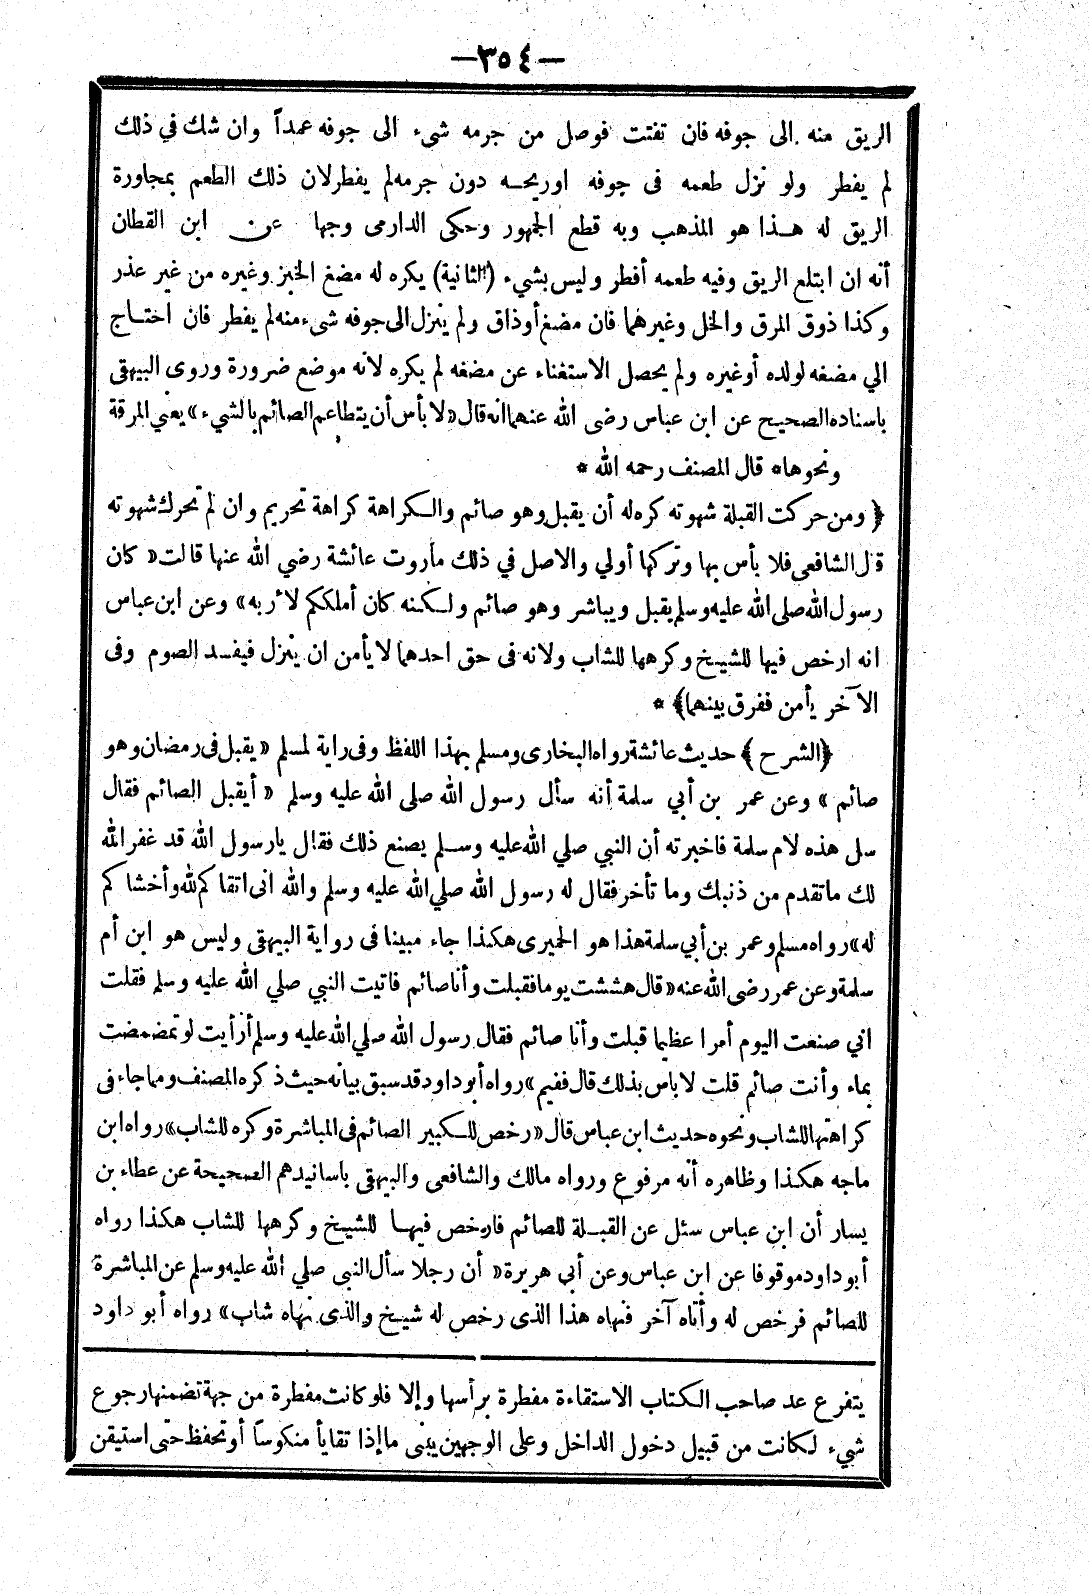 —٣٥٤—
الريق منه الى جوفه فان تفتت فوصل من جرمه شيء الى جوفه عمداً وان شك في ذلك
لم يفطر ولو نزل طعمه فى جوفه اوريحه دون جرمه لم يفطر لان ذلك الطعم بمجاورة
الريق له هذا هو المذهب وبه قطع الجمهور وحكى الدارمى وجها عن ابن القطان
أنه ان ابتلع الريق وفيه طعمه أفطر وليس بشيء (الثانية) يكره له مضغ الخبز وغيره من غير عذر
وكذا ذوق المرق والخل وغيرهما فان مضغ أوذاق ولم ينزل الى جوفه شيء منه لم يفطر فان احتاج
الي مضغه لولده أوغيره ولم يحصل الاستغناء عن مضغه لم يكره لانه موضع ضرورة وروى البيهقى
باسناده الصحيح عن ابن عباس رضى الله عنهما انه قال «لا بأس أن يتطاعم الصائم بالشيء» يعني المرقة
ونحوها* قال المصنف رحمه الله *
﴿ ومن حركت القبلة شهوته كره له أن يقبل وهو صائم والكراهة كراهة تحريم وان لم تحرك شهوته
قال الشافعى فلا بأس بها وتركها أولي والاصل في ذلك ماروت عائشة رضي الله عنها قالت «كان
رسول الله صلى الله عليه وسلم يقبل ويباشر وهو صائم ولكنه كان أملككم لأربه» وعن ابن عباس
انه ارخص فيها للشيخ وكرهها للشاب ولانه فى حق احدهما لا يأمن ان ينزل فيفسد الصوم وفى
الآخر يأمن ففرق بينهما﴾ *
﴿الشرح﴾ حديث عائشة رواه البخارى ومسلم بهذا اللفظ وفى راية لمسلم «يقبل فى رمضان وهو
صائم» وعن عمر بن أبي سلمة أنه سأل رسول الله صلى الله عليه وسلم «أيقبل الصائم فقال
سل هذه لام سلمة فاخبرته أن النبي صلي الله عليه وسلم يصنع ذلك فقال يارسول الله قد غفر الله
لك ماتقدم من ذنبك وما تأخر فقال له رسول الله صلي الله عليه وسلم والله انى اتقاكم لله وأخشاكم
له» رواه مسلم وعمر بن أبي سلمة هذا هو الحميرى هكذا جاء مبينا فى رواية البيهقى وليس هو ابن أم
سلمة وعن عمر رضى الله عنه «قال هششت يوما فقبلت وأنا صائم فاتيت النبي صلي الله عليه وسلم فقلت
اني صنعت اليوم أمرا عظيما قبلت وأنا صائم فقال رسول الله صلي الله عليه وسلم أرأيت لو تمضمضت
بماء وأنت صائم قلت لا باس بذلك قال ففيم» رواه أبو داود قد سبق بيانه حيث ذكره المصنف ومما جاء فى
كراهتها للشاب ونحوه حديث ابن عباس قال «رخص للكبير الصائم فى المباشرة وكره للشاب» رواه ابن
ماجه هكذا وظاهره أنه مرفوع ورواه مالك والشافعى والبيهقى باسانيدهم الصحيحة عن عطاء بن
يسار أن ابن عباس سئل عن القبلة للصائم فارخص فيها للشيخ وكرهها للشاب هكذا رواه
أبو داود موقوفا عن ابن عباس وعن أبي هريرة «أن رجلا سأل النبى صلي الله عليه وسلم عن المباشرة
للصائم فرخص له وأتاه آخر فنهاه هذا الذى رخص له شيخ والذى نهاه شاب» رواه أبو داود
يتفرع عد صاحب الكتاب الاستقاءة مفطرة برأسها وإلا فلو كانت مفطرة من جهة تضمنها رجوع
شيء لكانت من قبيل دخول الداخل وعلى الوجهين يبنى ما إذا تقايأ منكوساً أو تحفظ حتى استيقن